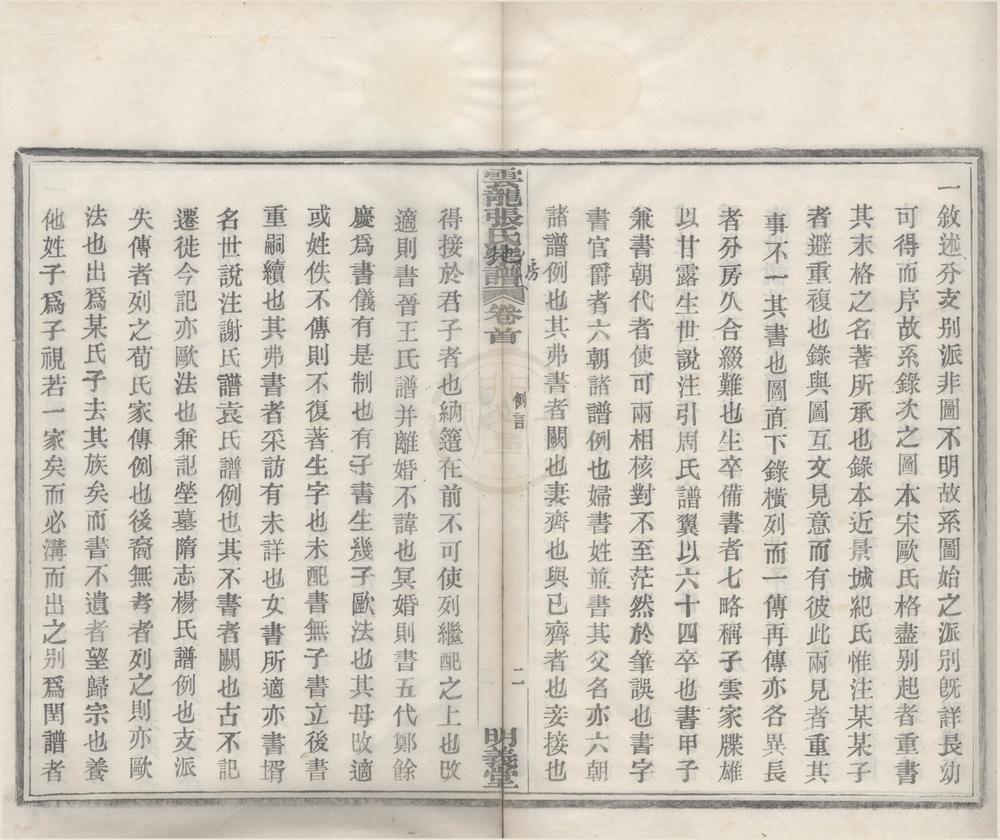 一敘述分支别派非圖不明故系圖始之派别旣詳長幼
可得而序故系錄次之圖本宋歐氏格盡别起者重書
其末格之名著所承也錄本近景城紀氏惟注某某子
者避重複也錄與圖互文見意而有彼此兩見者重其
事不一其書也圖直下錄橫列而一傳再傳亦各異長
者分房久合綴難也生卒備書者七略稱子雲家牒雄
以甘露生世說注引周氏譜翼以六十四卒也書甲子
兼書朝代者使可兩相核對不至茫然於筆誤也書字
書官爵者六朝諸譜例也婦書姓並書其父名亦六朝
諸譜例也其弗書者闕也妻齊也與已齊者也妾接也
雲龍張氏光譜
房
卷首
例言
二
明義堂
得接於君子者也納簉在前不可使列繼配之上也攺
適則書晉王氏譜并離婚不諱也冥婚則書五代鄭餘
慶爲書儀有是制也有子書生幾子歐法也其母攺適
或姓佚不傳則不復著生字也未配書無子書立後書
重嗣續也其弗書者采訪有未詳也女書所適亦書壻
名世說注謝氏譜袁氏譜例也其不書者闕也古不記
遷徙今記亦歐法也兼記塋墓隋志楊氏譜例也支派
失傳者列之荀氏家傳例也後裔無考者列之則亦歐
法也出爲某氏子去其族矣而書不遺者望歸宗也養
他姓子爲子視若一家矣而必溝而出之别爲閏譜者